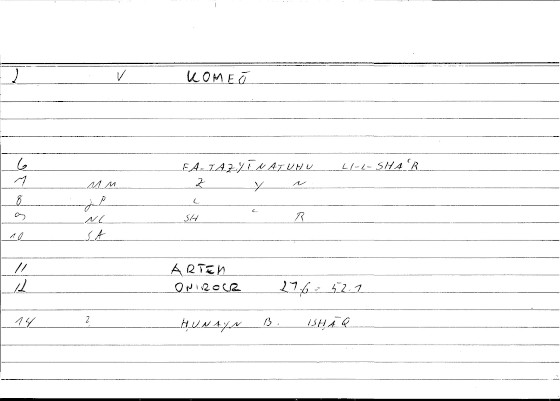 2 V KOMEŌ
6 FA-TAZYĪNATUHU LI-L-SHAʿR
7 MM Z Y N
8 JP L
9 NC SH ʿ R
10 SA
11 ARTEM
12 ONIROCR 27,6 = 52.1
14 2 ḤUNAYN B. ISḤĀQ